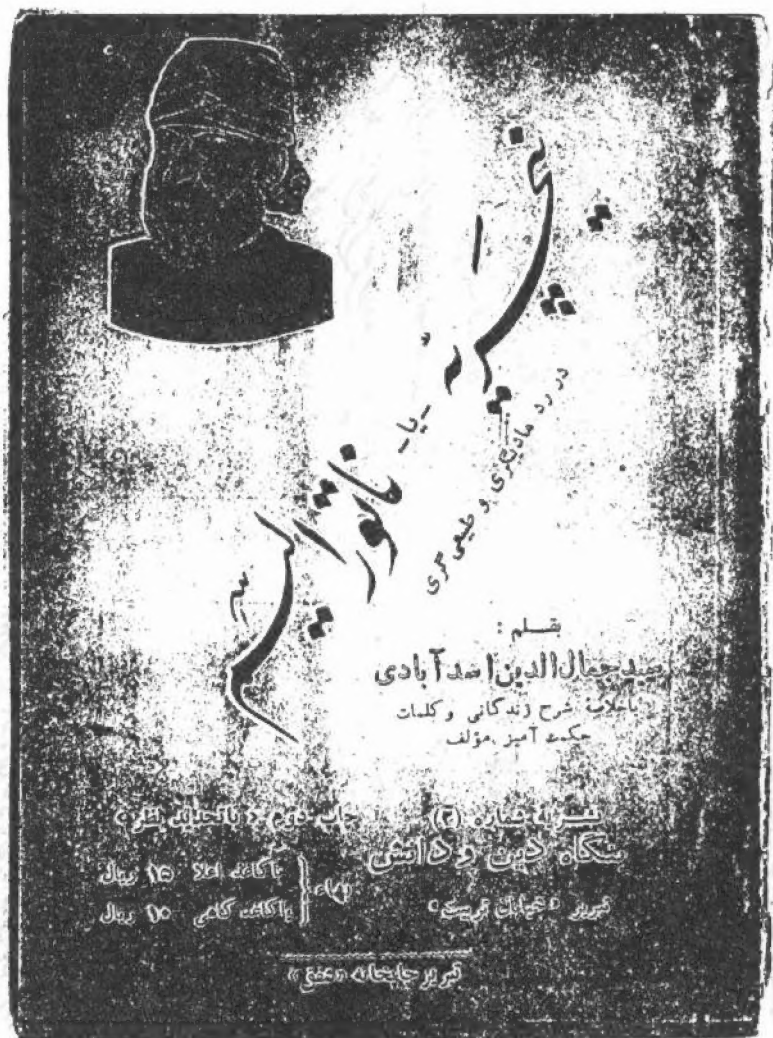 نیچریه
-یا-
ناتورالیسم
در رد مادیگری و طبیعی گری
بقلم :
سید جمال‌الدین اسدآبادی
باخلاصهٔ شرح زندگانی و کلمات
حکمت آمیز مؤلف
نشریه شماره (۳)
چاپ دوم « باتجدید نظر »
بنگاه دین و دانش
تبریز «خیابان تربیت»
بهاء
باکاغذ اعلا ۱۵ ریال
باکاغذ کاهی ۱۰ ریال
تبریز چاپخانه «شفق»